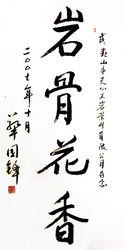 武夷山市天心岩茶有限公司存念
岩骨花香
二〇〇七年十月